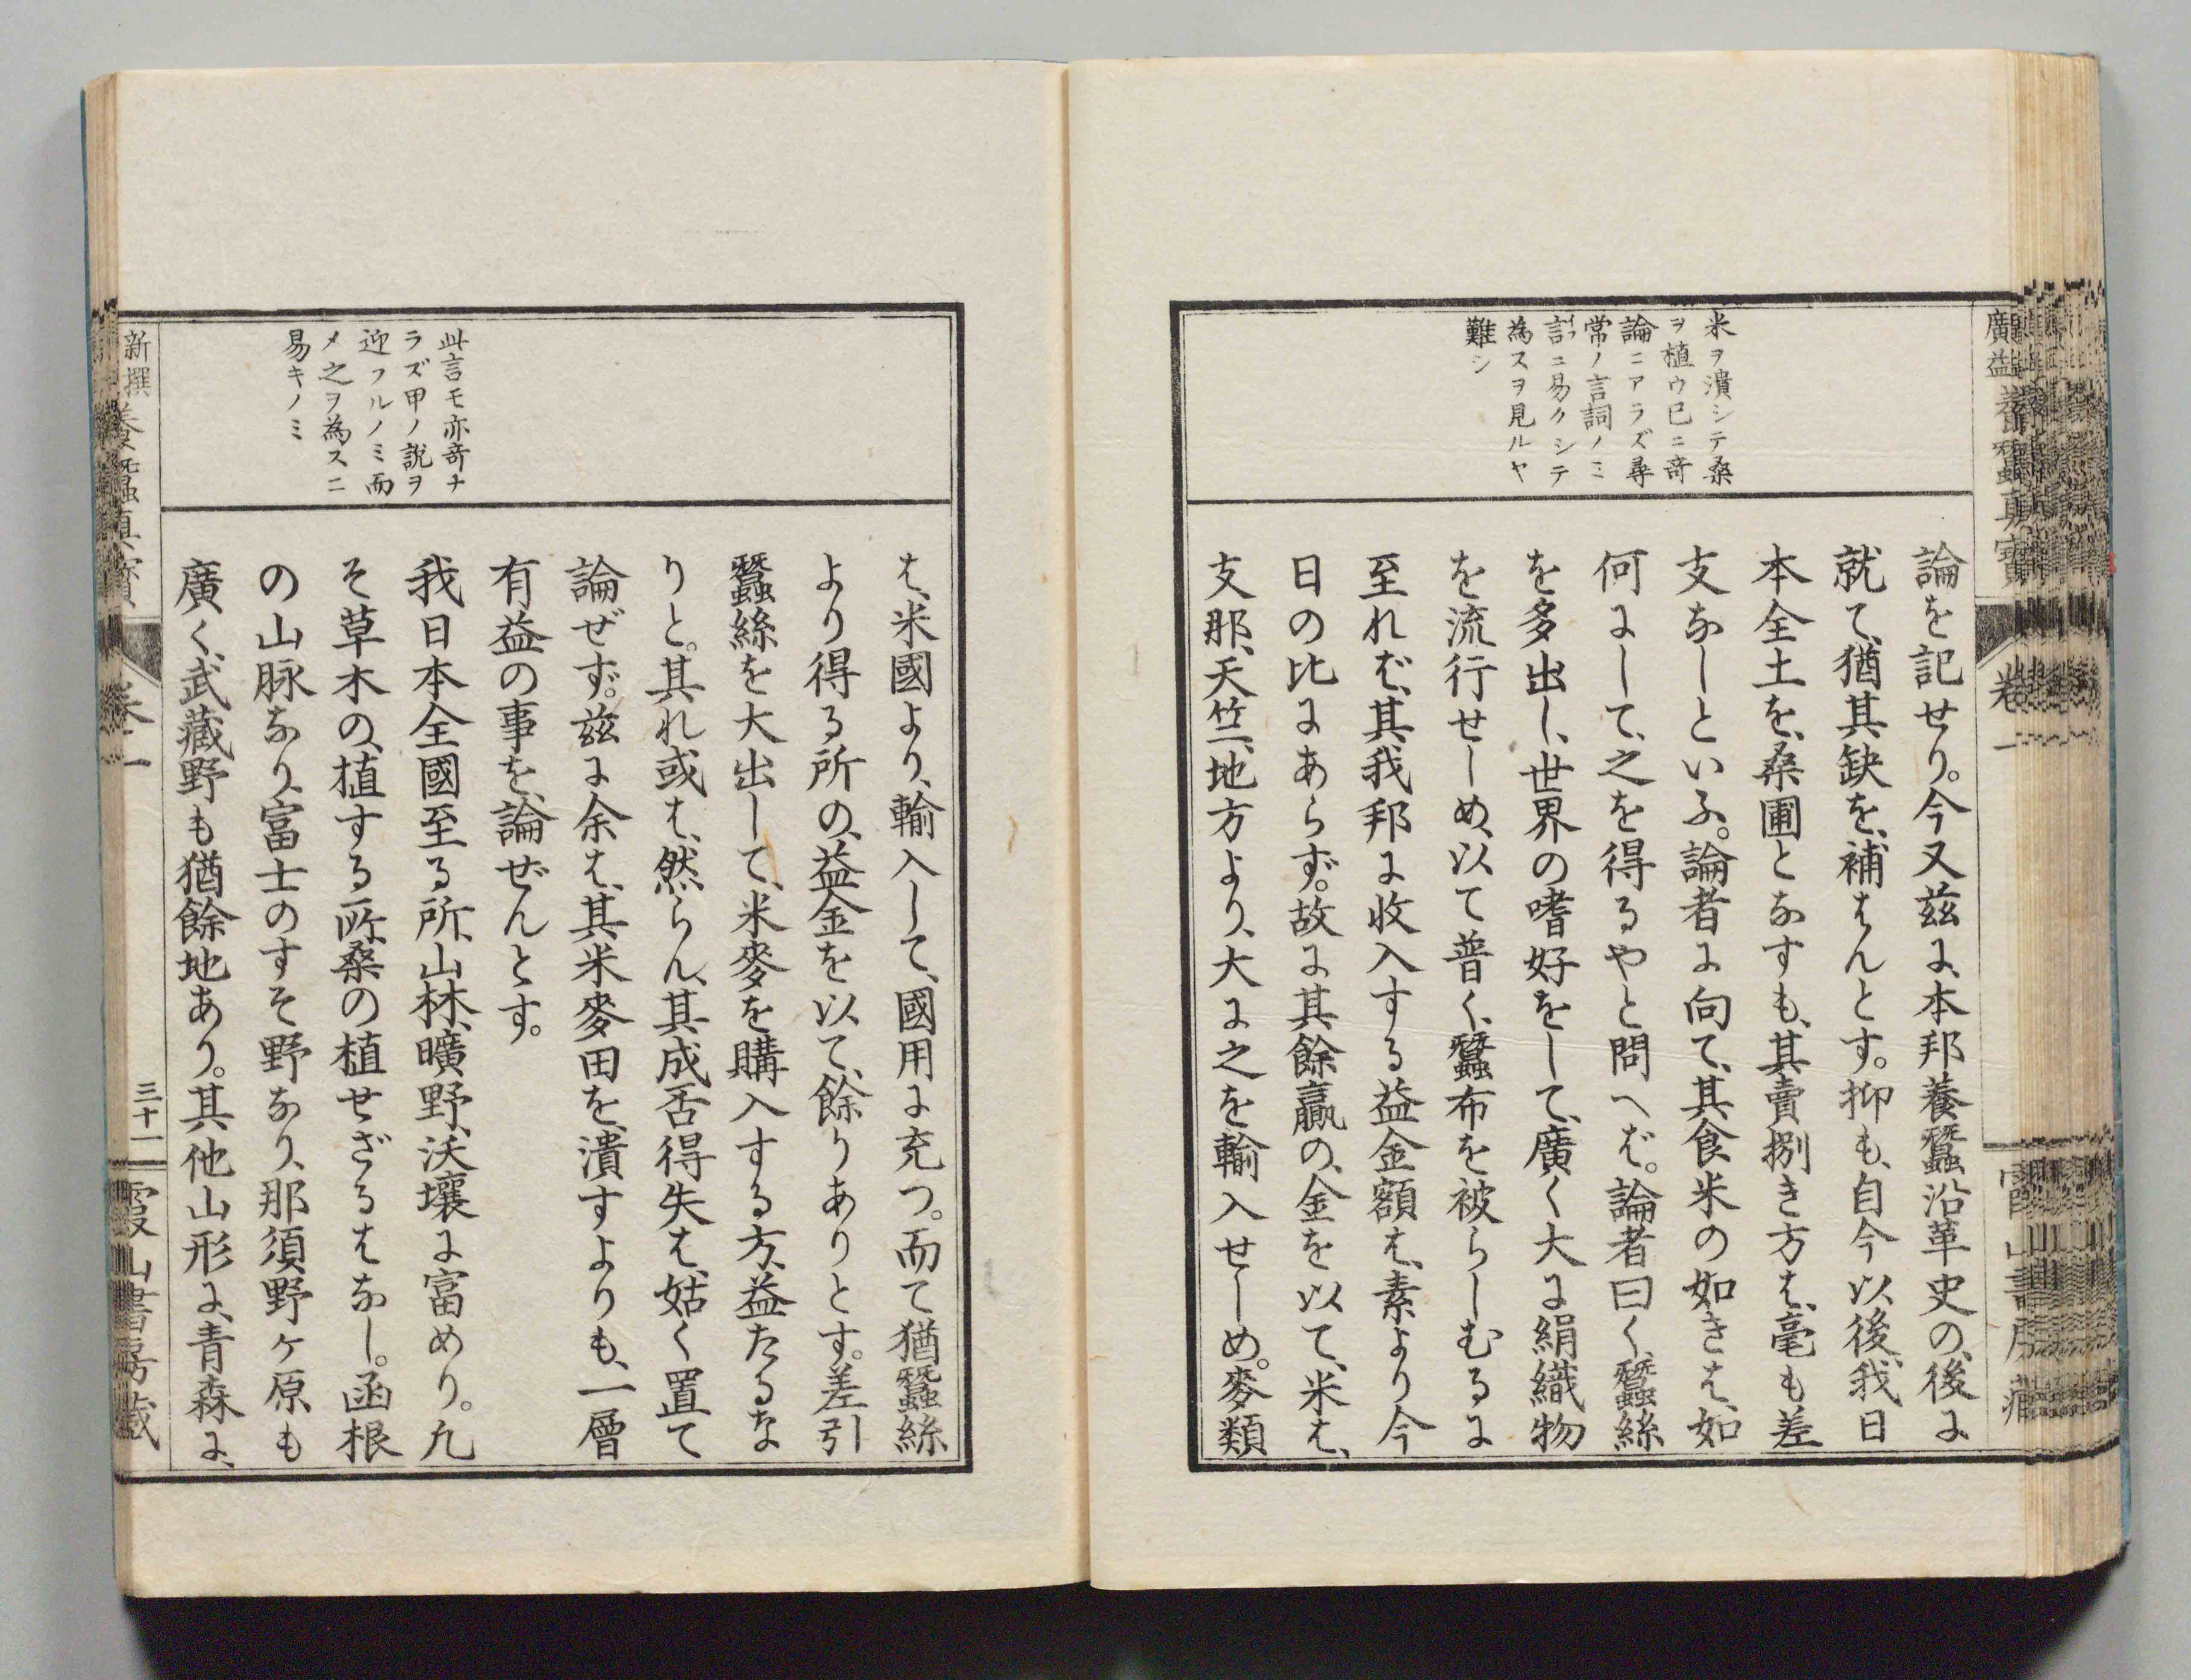 廣益養蠶眞寶
卷一
米ヲ潰シテ桑
ヲ植ウ已ニ奇
論ニアラズ尋
常ノ言詞ノミ
言フニ易クシテ
為スヲ見ルヤ
難シ
論を記せり。今又玆に、本邦養蠶沿革史の、後に
就て、猶其缺を、補はんとす。抑も、自今以後、我日
本全土を、桑圃となすも、其賣捌き方は、毫も差
支なしといふ。論者に向て、其食米の如きは、如
何にして、之を得るやと問へば。論者曰く、蠶絲
を多出し、世界の嗜好をして、廣く大に絹織物
を流行せしめ、以て普く、蠶布を被らしむるに
至れば、其我邦に收入する益金額は、素より今
日の比にあらず。故に其餘贏の、金を以て、米は、
支那、天竺、地方より、大に之を輸入せしめ。麥類
は、米國より、輸入して、國用に充つ。而て猶蠶絲
より得る所の、益金を以て、餘りありとす。差引
蠶絲を大出して、米麥を購入する方、益たるな
りと。其れ或は、然らん、其成否得失は、姑く置て
論ぜず。玆に余は、其米麥田を、潰すよりも、一層
有益の事を、論ぜんとす。
我日本全國至る所、山林、曠野、沃壤に富めり。凡
そ草木の、植する所、桑の植せざるはなし。函根
の山脉なり、富士のすそ野なり、那須野ヶ原も
廣く、武藏野も猶餘地あり。其他山形に、青森に、
此言モ亦奇ナ
ラズ甲ノ說ヲ
迎フルノミ而
メ之ヲ為スニ
易キノミ
新撰養蠶眞寶
卷一
三十一
霞山書房藏